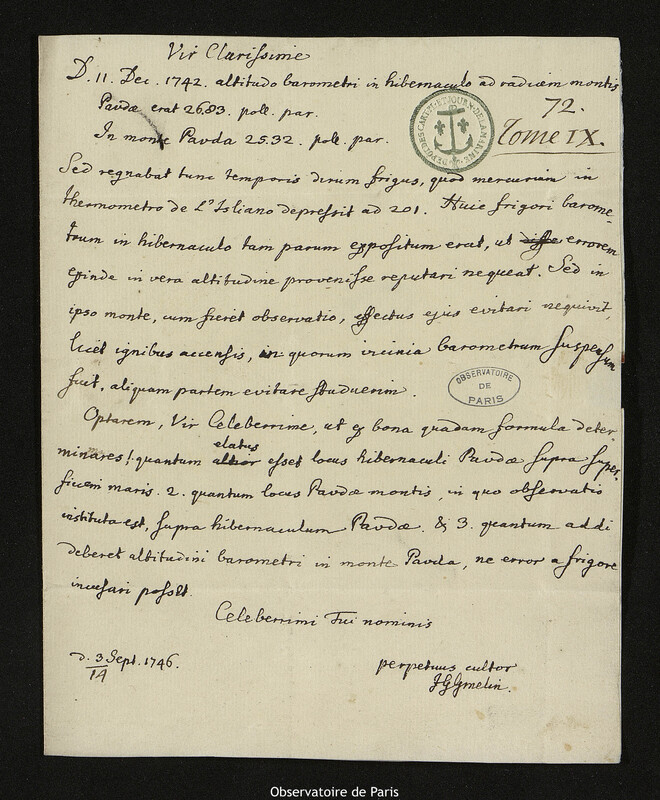 Vir Clarissime
D. 11. Dec. 1742. altitudo barometri in hibernaculo ad radicem montis
Pavdæ erat 26.83. poll. par.
72.
In monte Pavda 25.32. poll. par.
Tome IX.
DE LA MARINE
Sed regnabat tunc temporis dirum frigus, quod mercurium in
thermometro de L'Isliano depressit ad 201. Huic frigori barome-
trum in hibernaculo tam parum expositum erat, ut errorem
exinde in vera altitudine provenisse reputari nequeat. Sed in
ipso monte, cum fieret observatio, effectus ejus evitari nequivit,
licet ignibus accensis, in quorum vicinia barometrum suspensum
fuit, aliquam partem evitare studuerim.
OBSERVATOIRE
DE
PARIS
Optarem, Vir Celeberrime, ut ex bona quadam formula deter-
minares 1. quantum elatus altior esset locus hibernaculi Pavdæ supra super-
ficiem maris. 2. quantum locus Pavdæ montis, in quo observatio
instituta est, supra hibernaculum Pavdæ. & 3. quantum addi
deberet altitudini barometri in monte Pavda, ne error a frigore
incusari posset.
Celeberrimi Tui nominis
d. 3/14 Sept. 1746.
perpetuus cultor
JGGmelin.
Observatoire de Paris